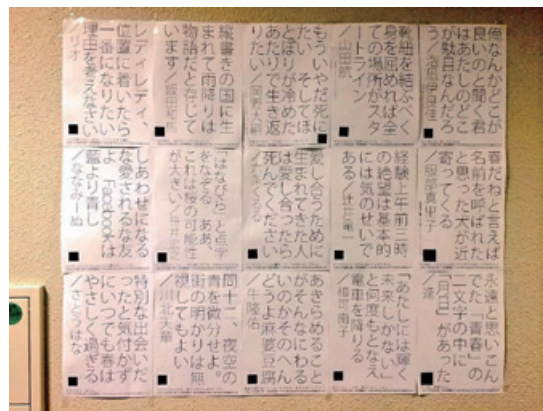 俺なんかどこが
良いのと聞く君
はあたしのどこ
が駄目なんだろ
う／泡凪伊良佳
靴紐を結ぶべく
身を屈めれば全
ての場所がスタ
ートライン
／山田航
もういやだ死に
たい そしてほ
とぼりが冷めた
あたりで生き返
りたい／岡野大嗣
縦書きの国に生
まれて雨降りは
物語だと存じて
います／飯田和馬
レディレディ、
位置に着いたら
一番になりたい
理由を考えなさい
／ノリオ
春だねと言えば
名前を呼ばれた
と思った犬が近
寄ってくる
／服部真里子
経験上午前三時
の絶望は基本的
には気のせいで
ある／辻井竜一
愛し合うために
生まれてきた人
は愛し合ったら
死んでください
「はなびら」と点字
をなぞる ああ、
これは桜の可能性
が大きい／笹井宏之
しあわせになる
な愛されるな友
よ Facebookは
藍より青し
／ななみーぬ
永遠と思いこん
でた「青春」の
二文字の中に
「月日」があった
「あたしには輝く
未来しかない」
と何度もとなえ
電車を降りる
あきらめること
がそんなにわる
いのかそのへん
どうよ麻婆豆腐
／牛隆佑
問十二、夜空の
青を微分せよ。
街の明かりは無
視してもよい
／川北天華
特別な出会いだ
ったと気付かず
にいつでも春は
やさしく過ぎる
／さとうはな